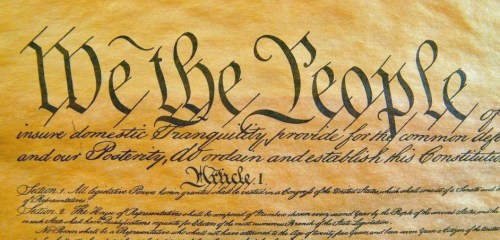 We the People
insure domestic Tranquility, provide for the common
and our Posterity, do ordain and establish this Constitution
Article. I.
Section. 1. All legislative Powers herein granted shall be vested in a Congress of the United States, which shall consist of a Senate and
of Representatives.
Section. 2. The House of Representatives shall be composed of Members chosen every second Year by the People of the several States, and
in each State shall have the Qualifications requisite for Electors of the most numerous Branch of the State Legislature.
No Person shall be a Representative who shall not have attained to the Age of twenty five Years, and been seven Years a Citizen of the